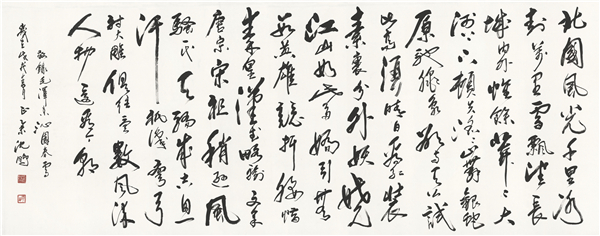 北國風光千里冰
封萬里雪飄望長
城內外惟餘莽々大
河上下頓失滔々山舞銀蛇
原馳蠟象欲與天公試
比高須晴日看紅裝
素裹分外妖嬈
江山如此多嬌引無
數英雄競折腰惜
秦皇漢武略輸文采
唐宗宋祖稍遜風
騷一代天驕成吉思
汗祇識彎弓
射大雕俱往矣數風流
人物還看今朝
敬錄毛澤東沁園春雪